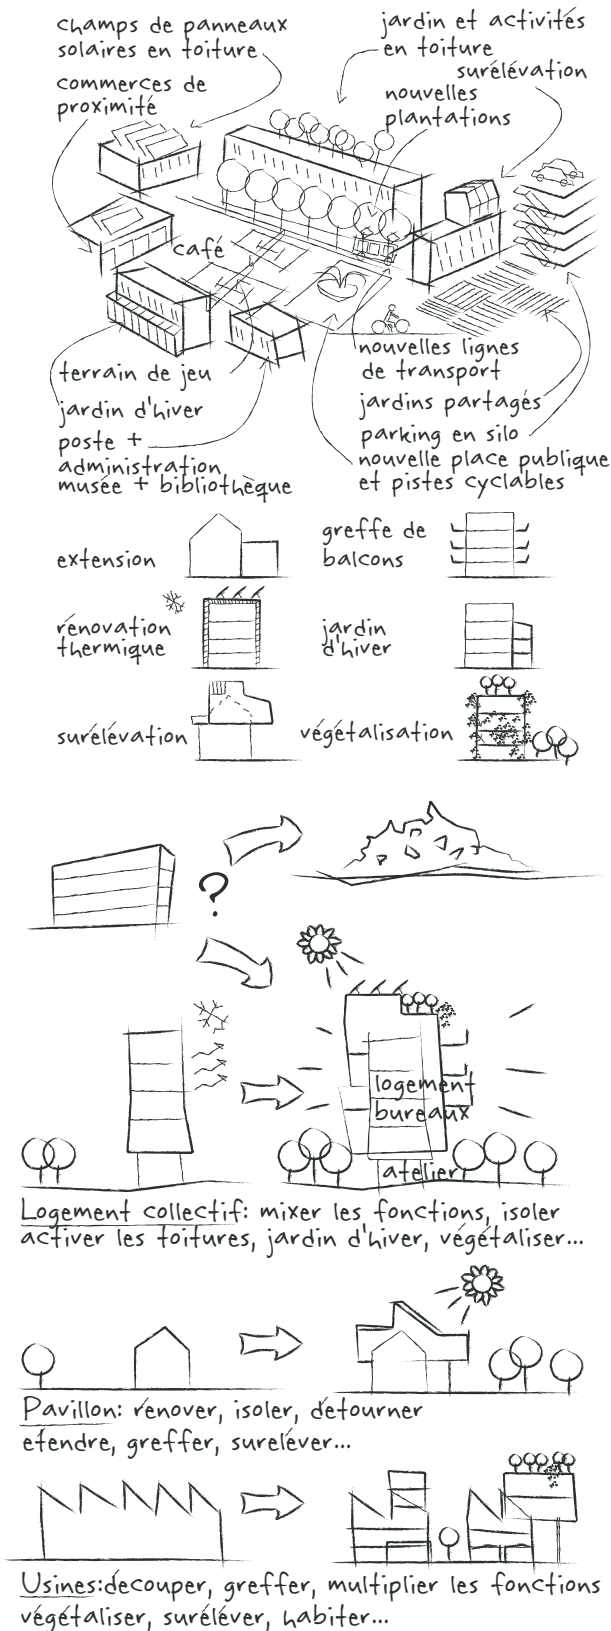 champs de panneaux
solaires en toiture
commerces de
proximité
jardin et activités
en toiture
surélévation
nouvelles
plantations
café
terrain de jeu
jardin d'hiver
poste +
administration
musée + bibliothèque
nouvelles lignes
de transport
jardins partagés
parking en silo
nouvelle place publique
et pistes cyclables
extension
greffe de
balcons
rénovation
thermique
jardin
d'hiver
surélévation
végétalisation
?
logement
bureaux
atelier
Logement collectif: mixer les fonctions, isoler
activer les toitures, jardin d'hiver, végétaliser...
Pavillon: rénover, isoler, détourner
étendre, greffer, sureléver...
Usines:découper, greffer, multiplier les fonctions
végétaliser, suréléver, habiter...